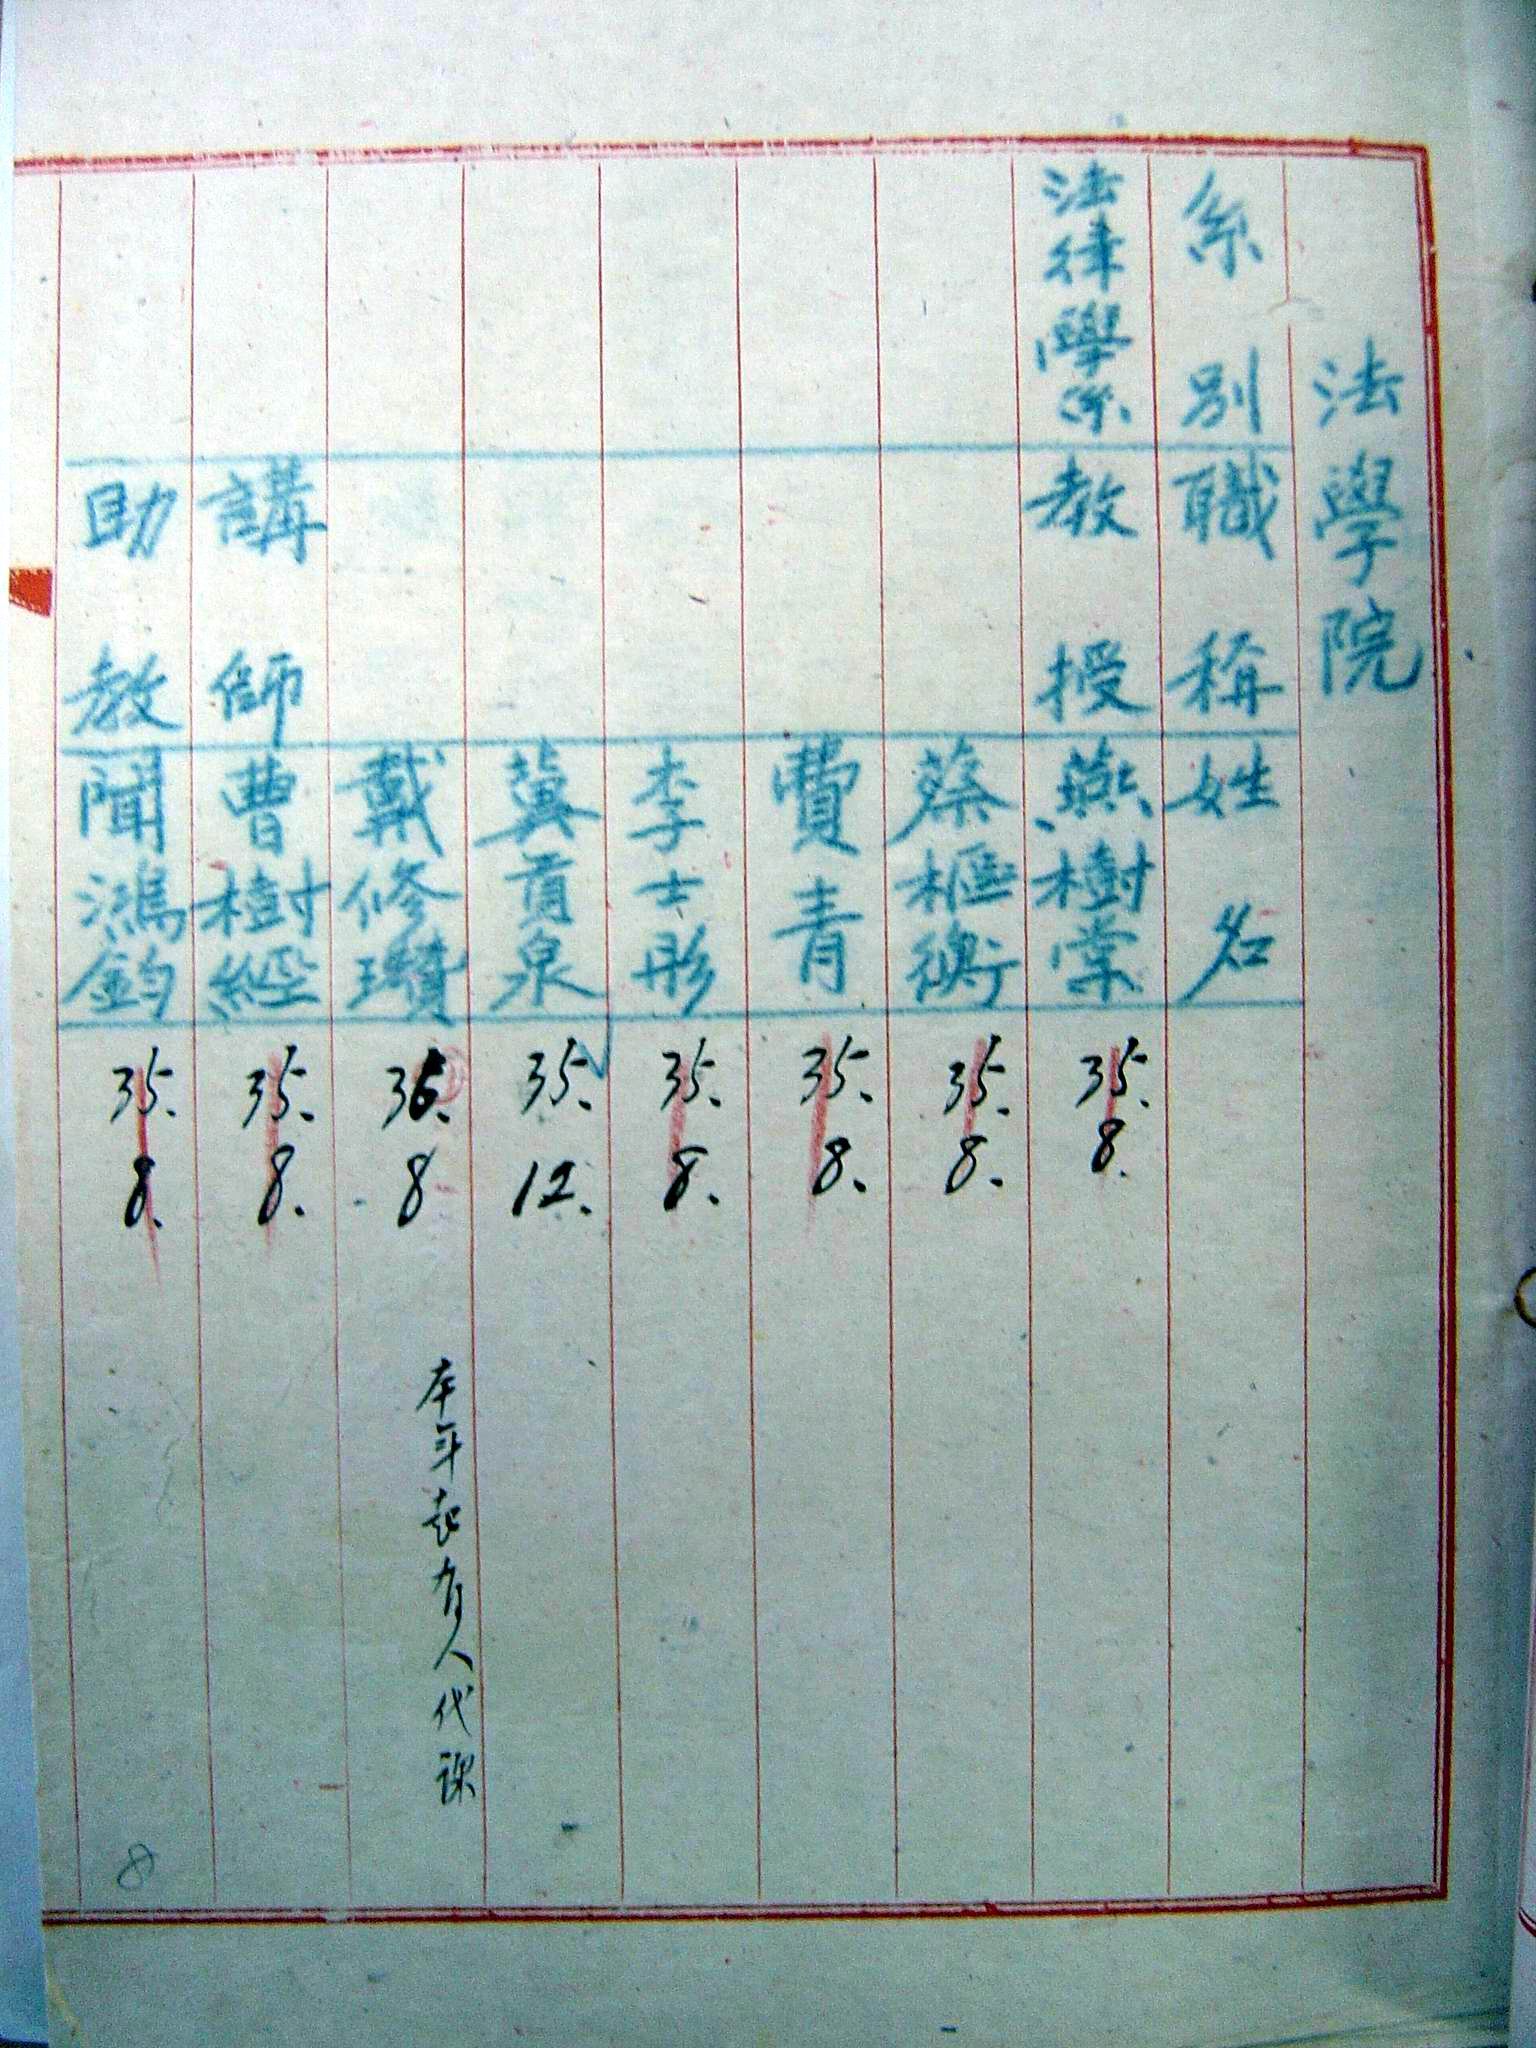 法學院
系別 職稱 姓名
法律學系 教授 燕樹棠 35.8.
蔡樞衡 35.8.
費青 35.8.
李士彤 35.8.
冀貢泉 35.12.
戴修瓚 36.8 本年起有人代课
講師 曹樹經 35.8.
助教 聞鴻鈞 35.8.
8